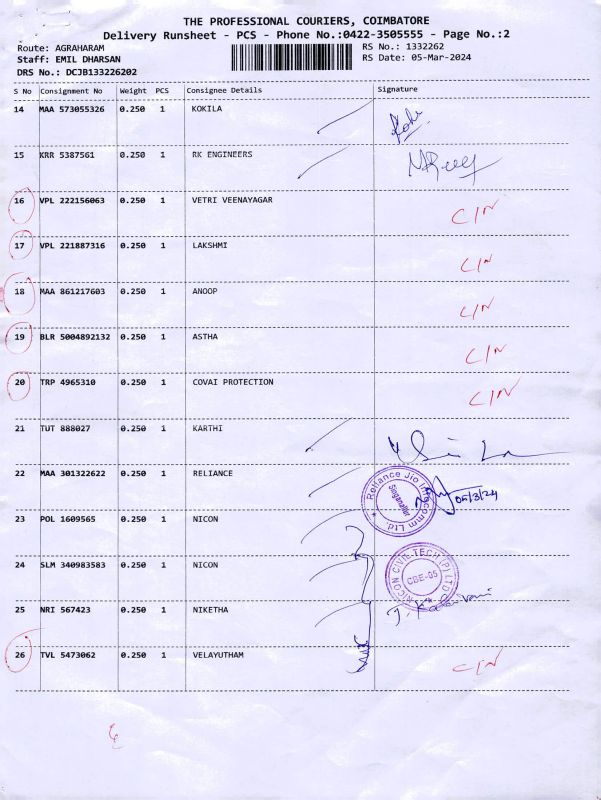 THE PROFESSIONAL COURIERS, COIMBATORE
Delivery Runsheet - PCS - Phone No.:0422-3505555 - Page No.:2
Route: AGRAHARAM
RS No.: 1332262
Staff: EMIL DHARSAN
RS Date: 05-Mar-2024
DRS No.: DCJB133226202
S No Consignment No Weight PCS Consignee Details Signature
14 MAA 573055326 0.250 1 KOKILA
15 KRR 5387561 0.250 1 RK ENGINEERS
16 VPL 222156063 0.250 1 VETRI VEENAYAGAR C/N
17 VPL 221887316 0.250 1 LAKSHMI C/N
18 MAA 861217603 0.250 1 ANOOP C/N
19 BLR 5004892132 0.250 1 ASTHA C/N
20 TRP 4965310 0.250 1 COVAI PROTECTION C/N
21 TUT 888027 0.250 1 KARTHI
22 MAA 301322622 0.250 1 RELIANCE Reliance Jio Infocomm Ltd. 05/3/24
23 POL 1609565 0.250 1 NICON
24 SLM 340983583 0.250 1 NICON NICON CIVIL-TECH (P) LTD CBE-05
25 NRI 567423 0.250 1 NIKETHA
26 TVL 5473062 0.250 1 VELAYUTHAM C/N